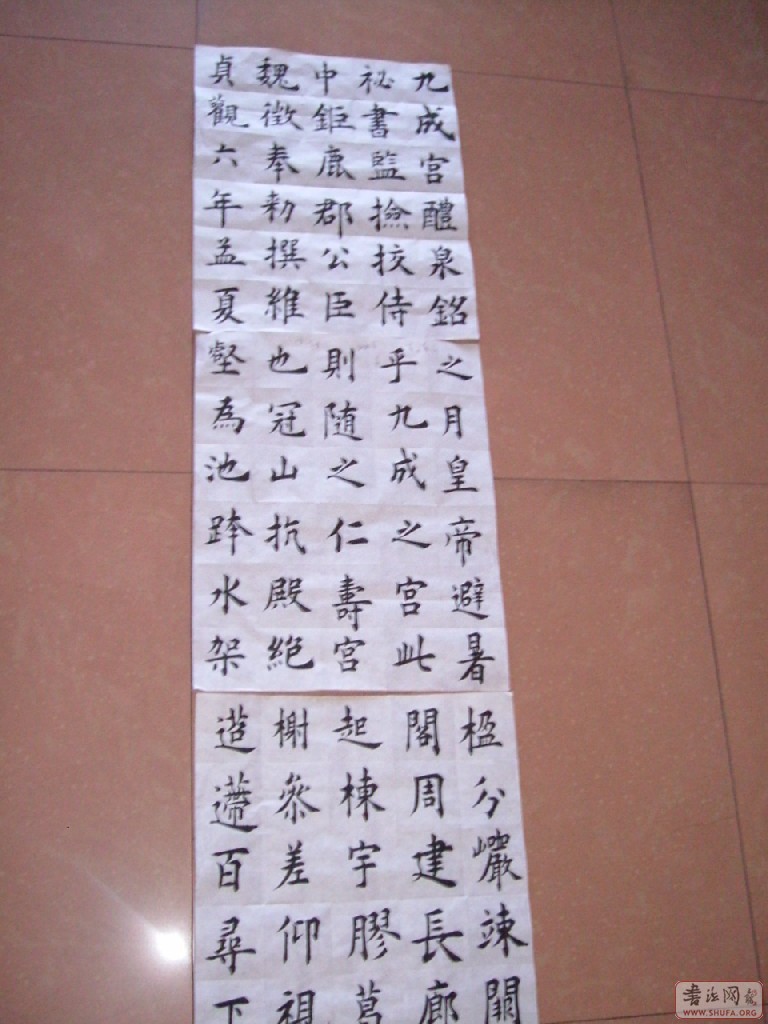 九成宫醴泉銘
祕書監撿挍侍
中鉅鹿郡公臣
魏徵奉勑撰維
貞觀六年孟夏
之月皇帝避暑
乎九成之宫此
則随之仁壽宫
也冠山抗殿絶
壑為池跨水架
楹分巖竦闕
閣周建長廊
起棟宇膠葛
榭叅差仰視
迢遰百尋下
書法网
WWW.SHUFA.ORG